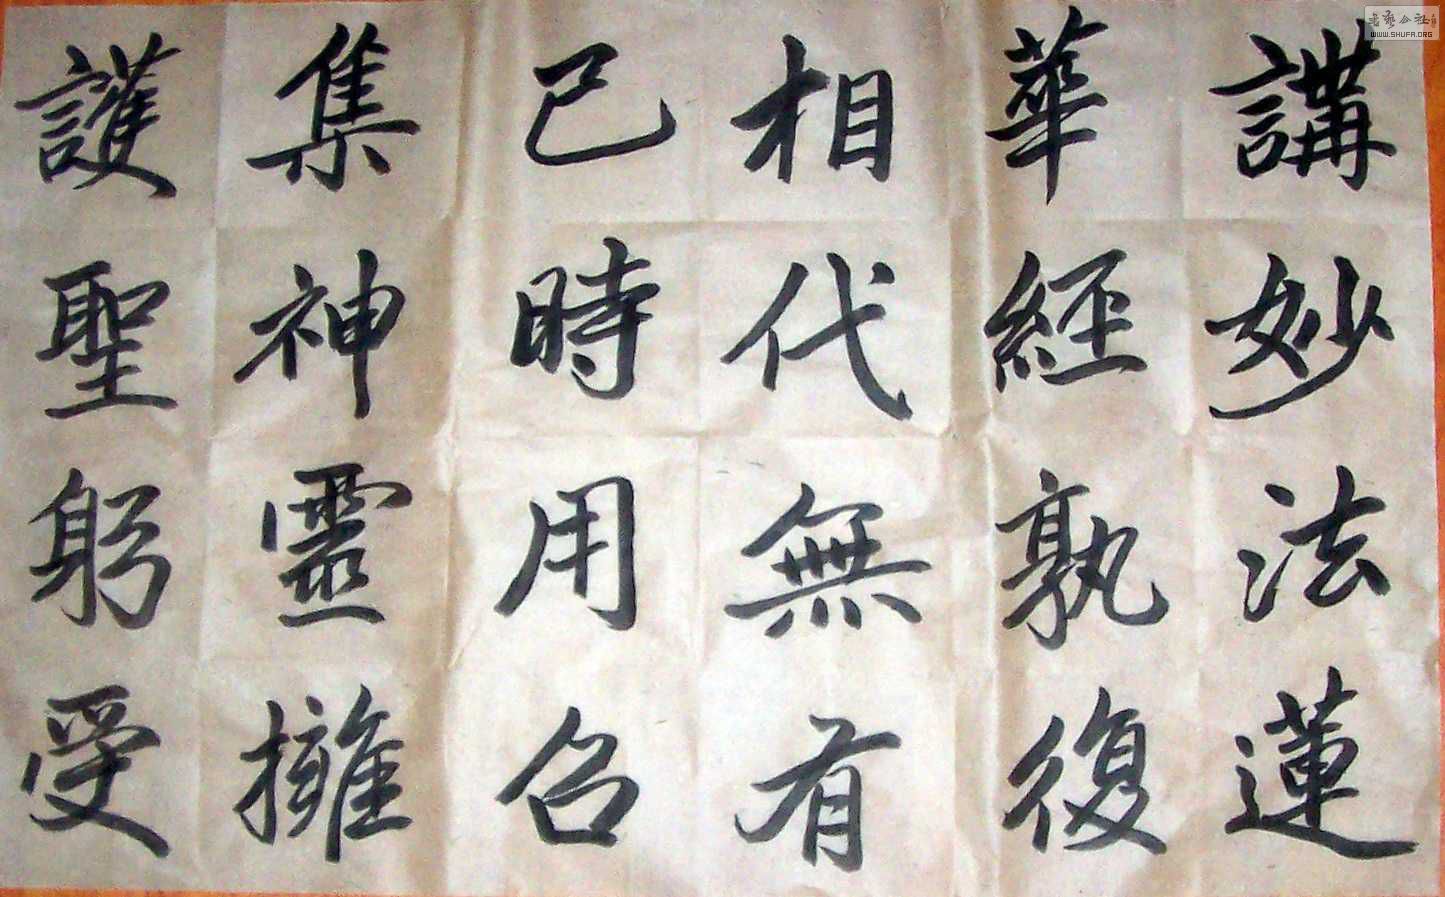 講妙法蓮
華經孰復
相代無有
已時用召
集神靈擁
護聖躬受
书艺公社
WWW.SHUFA.ORG